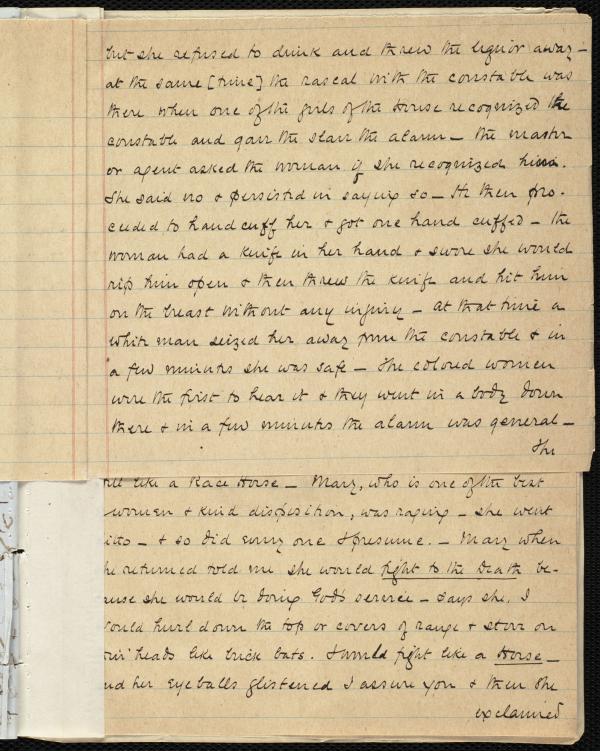 but she refused to drink and threw the liquor away –
at the same [time] the rascal with the constable was
there when one of the girls of the House recognized the
constable and gave the slave the alarm – the master
or agent asked the woman if she recognized him.
She said no & persisted in saying so – He then pro-
ceeded to handcuff her & got one hand cuffed – the
woman had a knife in her hand & swore she would
rip him open & then threw the knife and hit him
on the breast without any injury – at that time a
white man seized her away from the constable & in
a few minutes she was safe – The colored women
were the first to hear it & they went in a body down
there & in a few minutes the alarm was general –
The
like a Race Horse – Mary, who is one of the best
women & kind disposition, was raging – she went
& so did every one I presume. – Mary when
he returned told me she would fight to the Death be-
ause she would be doing God's service – says she, I
ould hurl down the top or covers of range & stove on
heads like brick bats. I would fight like a Horse –
nd her Eyeballs glistened I assure you & then she
exclaimed